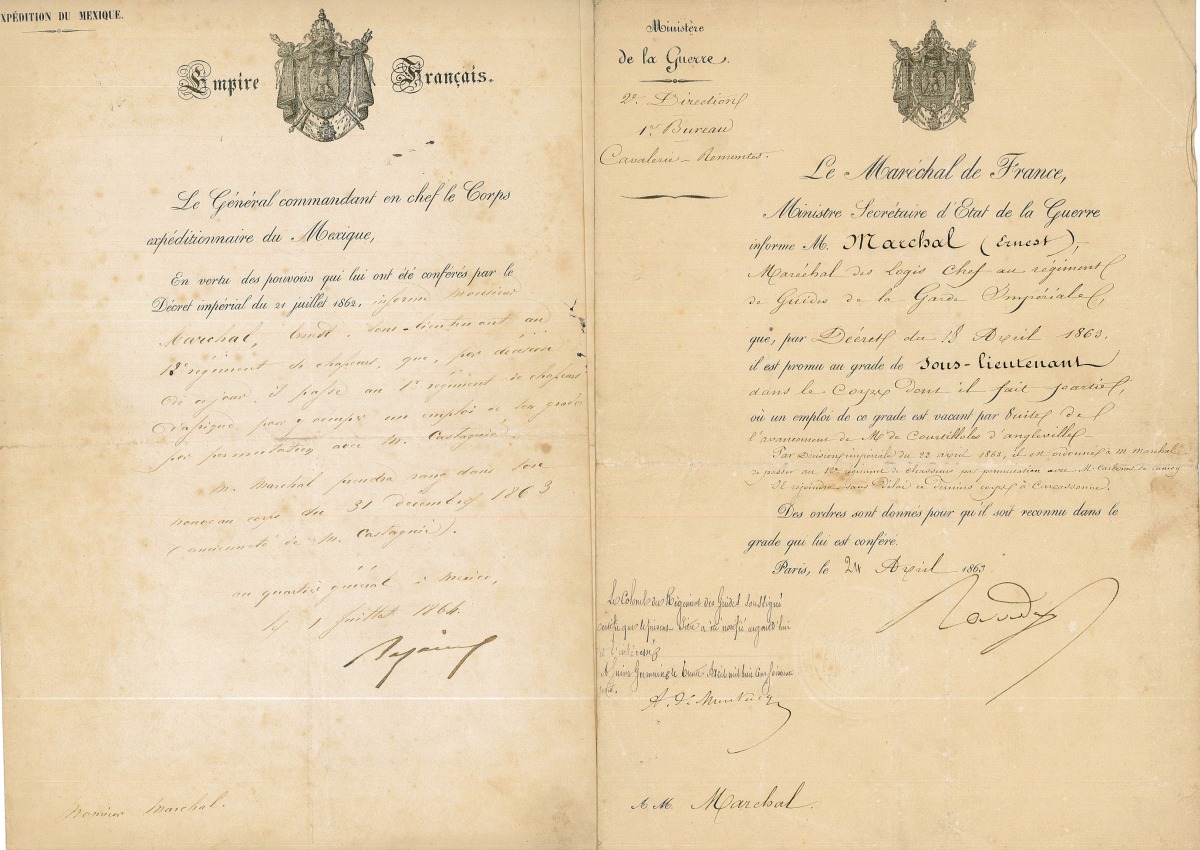 EXPÉDITION DU MEXIQUE.
Empire Français.
Le Général commandant en chef le Corps
expéditionnaire du Mexique,
En vertu des pouvoirs qui lui ont été conférés par le
Décret impérial du 21 juillet 1862, informe Monsieur
Marchal, Ernest, Sous-lieutenant au
12e régiment de chasseurs, que, par décision
de ce jour, il passe au 1er régiment de chasseurs
d'afrique pour y occuper un emploi de son grade
par permutation avec M. Castagnié.
M. Marchal prendra rang dans son
nouveau corps du 31 décembre 1863
(ancienneté de M. Castagnié).
au quartier général à Mexico,
le 1 Juillet 1864
Monsieur Marchal.
Ministère
de la Guerre.
2e. Direction
1er Bureau
Cavalerie - Remontes.
Le Maréchal de France,
Ministre Secrétaire d'Etat de la Guerre
informe M. Marchal (Ernest),
Maréchal des Logis Chef au régiment
de Guides de la Garde Impériale,
que, par Décret du 18 Avril 1863,
il est promu au grade de Sous-lieutenant
dans le Corps dont il fait partie,
où un emploi de ce grade est vacant par suite de
l'avancement de M. de Courtilloles d'angleville
Par Décision impériale du 23 avril 1863, il est ordonné à M. Marchal
de passer au 12e régiment de Chasseurs par permutation avec M.
Il rejoindra sans délai ce dernier corps à Carcassonne.
Des ordres sont donnés pour qu'il soit reconnu dans le
grade qui lui est conféré.
Paris, le 24 Avril 1863
Randon
Le Colonel du Régiment des Guides soussigné
certifie que le présent a été notifié aujourd'hui
à l'intéressé
St Germain le trente Avril mil huit cent soixante
trois.
A M. Marchal.